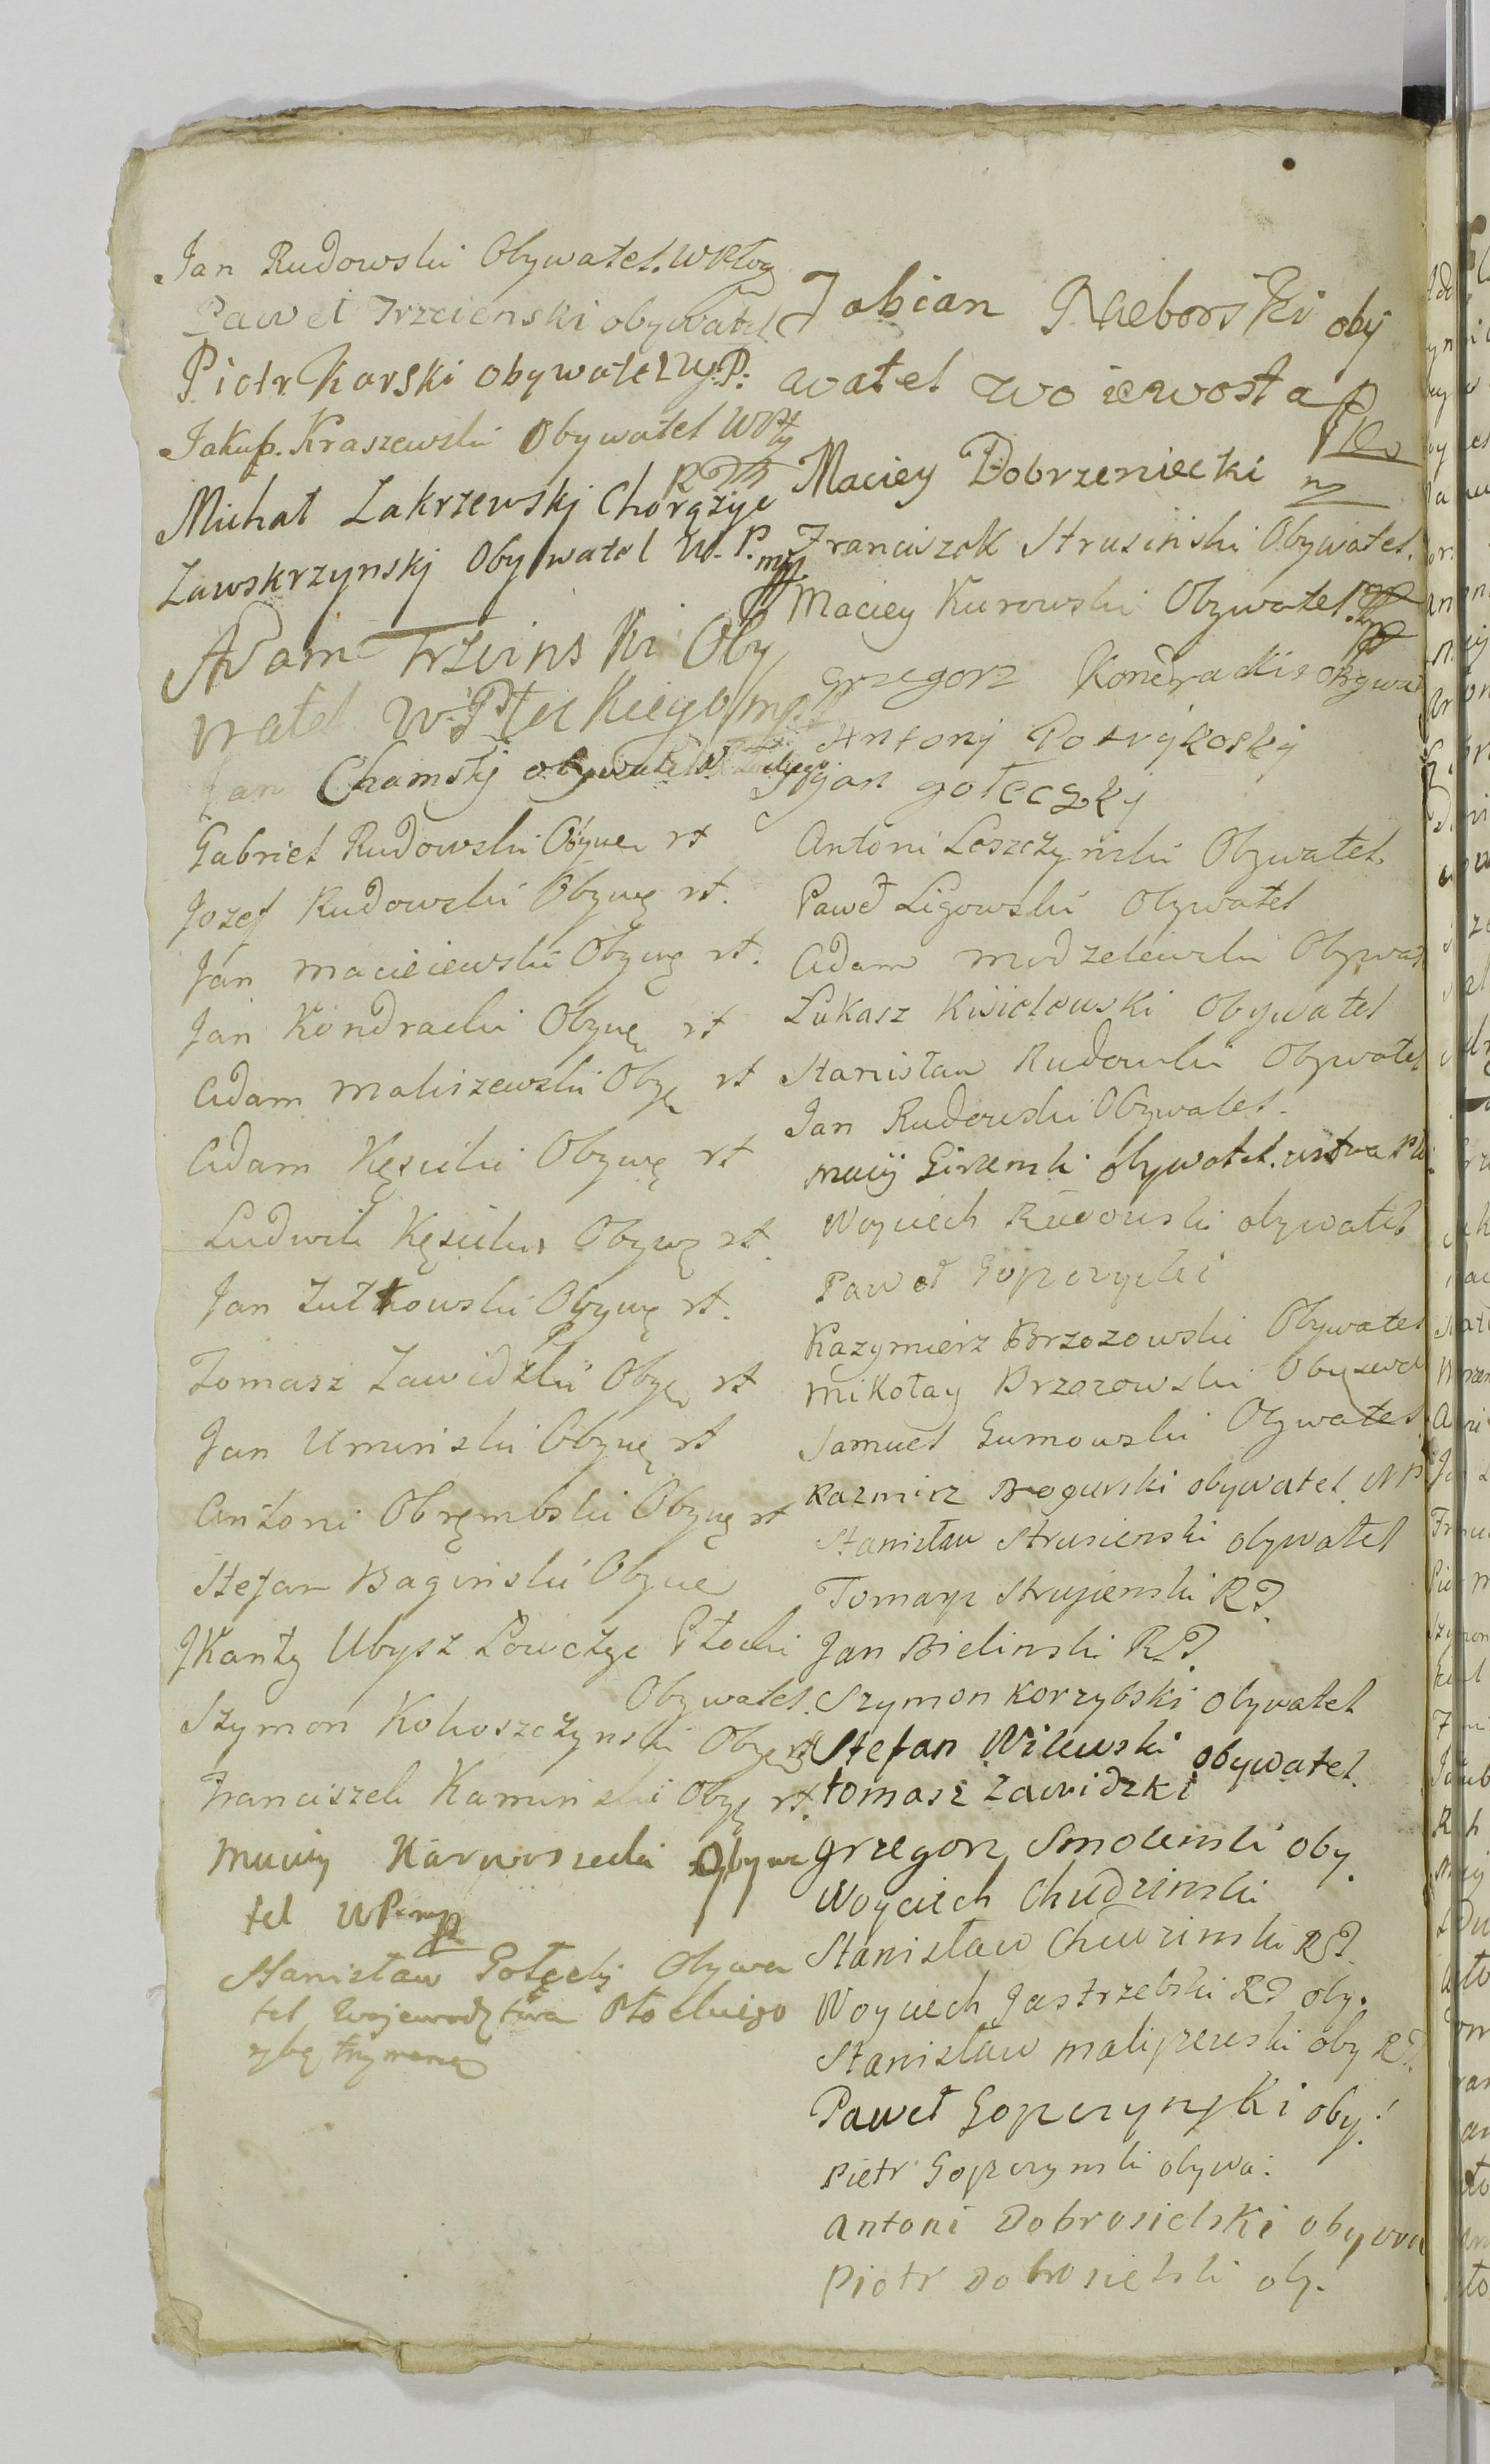 Jan Rudowski Obywatel. WPłog
Paweł Trzcienski obywatel
Piotr Karski obywatel W:P:
Jakup. Kraszewski Obywatel WP
Michał Zakrzewskj Chorążyc
Zawskrzynskj Obywatel W. P. mp
Adam Trzcinski Oby
watel W: Płockiego mp
Jan Chamskj obywatel W Płockiego
Gabriel Rudowski Obywa rt
Jozef Rudowski Obywę rt.
Jan Macieiewski Obywę rt.
Jan Kondracki Obywę rt
Adam Maliszewski Obyę rt
Adam Kęsicki Obywę rt
Ludwik Kęsicki Obywę rt.
Jan Żułkowski Obywę rt.
Tomasz Zawidzki Obyę rt
Jan Uminski Obywę rt
Antoni Obrębmski Obywę rt
Stefan Baginski Obywę
JKanty Ubysz Łowczyc Płocki
Obywatel.
Szymon Kokoszczynski Obyę rt
Franciszek Kaminski Obyę rt.
Maciey Karwosiecki Obywa
tel WP mp
Stanisław Gołęckj Obywa
tel Wojewodztwa Płockiego
Fabian Nieborski oby
watel wo iewosta
Płe
Maciey Dobrzeniecki mp
Franciszek Strusinski Obywatel.
Maciey Kurowski Obywatel mp
Grzegorz Kondracki obywa
Antonj Potrykoskj
Jgan gołeczkj
Antoni Leszczynski Obywatel
Paweł Ligowski Obywatel
Adam Modzelewski Obywat
Łukasz Kisielowski Obywatel
Stanisław Rudowski Obywatel
Jan Rudowski Obywatel.
Woyciech Rudowski obywatel
Paweł Gopczycki
Kazymierz Brzozowski Obywatel
Mikołay Brzozowski Obyewa
Samuel Gumowski Obywatel
Kazmirz Bogurski obywatel WP
Stanisław Strusienski obywatel
Tomasz Strusienski RP.
Jan Bielinski RP.
Szymon Korzybski obywatel
Stefan Wilewski obywatel.
tomasz Zawidzki
grzegorz Smolenski oby.
Woyciech Chudzinski
Stanisław Chudzinski RP.
Woyciech Jastrzebski RP oby.
Stanisław Maliszewski oby RP.
Paweł Gopczynski oby:
Pietr Gopczynski obywa:
Antoni Dobrosielski obywa
Piotr Dobrosielski oby.